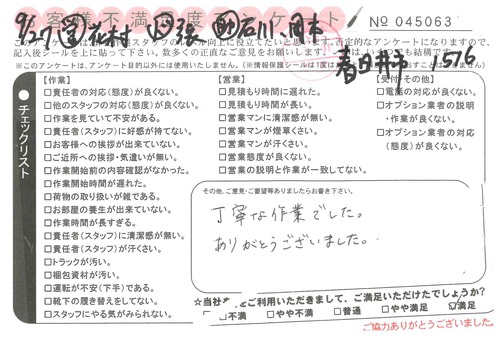 お客様不満足度アンケート
No 045063
9/27 営 花村 現 張 助 石川、岡本
春日井市 1576
このアンケートは、スタッフのスキル向上に役立てたいと思います。否定的なアンケートになりますので、
記入後シールを上に貼って下さい。多数のご意見を頂けたらと思います。良いアンケートはいつでも結構です。
※このアンケートは、アンケート目的以外には使用いたしません。(※情報保護シールは1度は
チェックリスト
【作業】
□責任者の対応(態度)が良くない。
□他のスタッフの対応(態度)が良くない。
□作業を見ていて不安がある。
□責任者(スタッフ)に好感が持てない。
□お客様への挨拶が出来ていない。
□ご近所への挨拶・気遣いが無い。
□作業開始前の内容確認がなかった。
□作業開始時間が遅れた。
□荷物の取り扱いが雑である。
□お部屋の養生が出来ていない。
□作業時間が長すぎる。
□責任者(スタッフ)に清潔感が無い。
□責任者(スタッフ)が汗くさい。
□トラックが汚い。
□梱包資材が汚い。
□運転が不安(下手)である。
□靴下の履き替えをしてない。
□スタッフにやる気がみられない。
【営業】
□見積もりに遅れた。
□見積もり時間が長い。
□営業マンに清潔感が無い。
□営業マンが煙草くさい。
□営業マンが汗くさい。
□営業態度が良くない。
□営業の説明と作業が一致してない。
【受付・その他】
□電話の対応が良くない。
□オプション業者の説明
・作業が良くない。
□オプション業者の対応
(態度)が良くない。
その他、ご意見・ご要望等ありましたらお書き下さい。
丁寧な作業でした。
ありがとうございました。
☆当社をご利用いただきまして、ご満足いただけたでしょうか?
□不満 □やや不満 □普通 □やや満足 ☑満足
ご協力ありがとうございました。